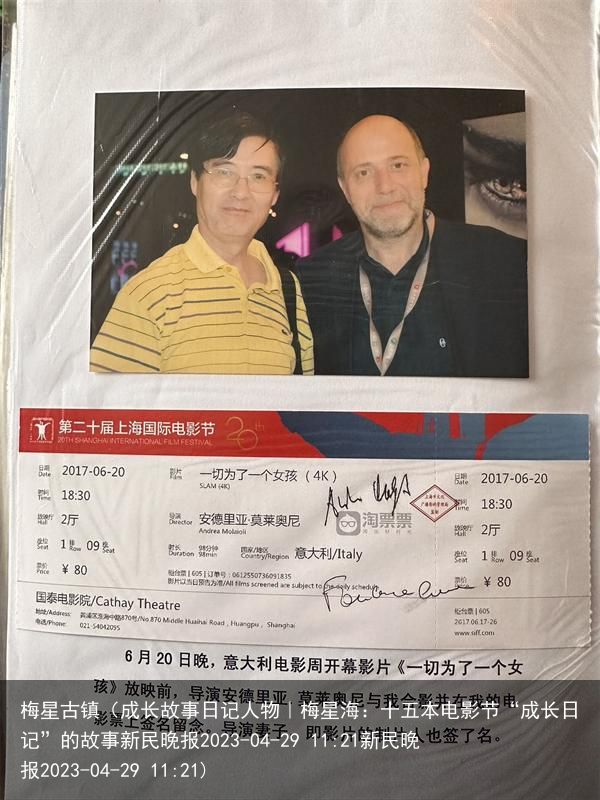 第二十届上海国际电影节
20TH SHANGHAI INTERNATIONAL FILM FESTIVAL
20th
日期
Date
2017-06-20
影片
Film
一切为了一个女孩（4K）
SLAM (4K)
日期
Date
2017-06-20
时间
Time
18:30
时间
Time
18:30
放映厅
Hall
2厅
导演
Director
安德里亚·莫莱奥尼
Andrea Molaioli
淘票票
放映厅
Hall
2厅
座位
Seat
1 排 Row 09 座 Seat
时长
Duration
98分钟
98min
国家/地区
Country/Region
意大利/Italy
座位
Seat
1 排 Row 09 座 Seat
票价
Price
¥ 80
柜台票 | 605 | 订单号：0612550736091835
影片以当日预告为准/All films screened are subject to the daily schedule
票价
¥ 80
国泰电影院/Cathay Theatre
地址/Address: 黄浦区淮海中路870号/No.870 Middle Huaihai Road, Huangpu, Shanghai
电话/Phone: 021-54042095
柜台票 | 605
2017.06.17-26
www.siff.com
6月20日晚，意大利电影周开幕影片《一切为了一个女
孩》放映前，导演安德里亚 莫莱奥尼与我合影并在我的电
影票上签名留念，导演妻子，即影片的制片人也签了名。
梅星古镇（成长故事日记人物｜梅星海：十五本电影节“成长日
记”的故事新民晚报2023-04-29 11:21新民晚
报2023-04-29 11:21）